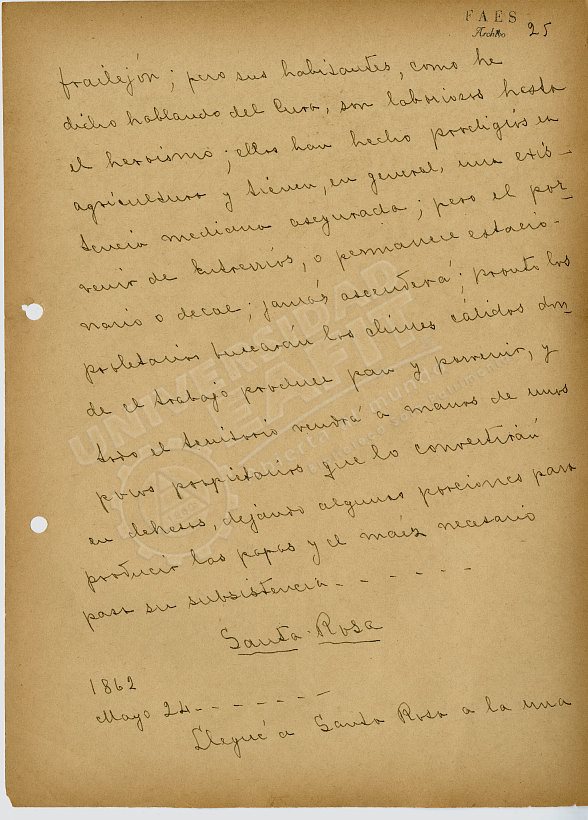 FAES
Archivo 25
frailejón; pero sus habitantes, como he
dicho hablando del Cura, son laboriosos hasta
el heroismo; ellos han hecho prodigios en
agricultura y tienen, en general, una exis-
tencia mediana asegurada; pero el por-
venir de Entrerríos, o permanece estacio-
nario o decae; jamás ascenderá; pronto los
proletarios buscarán los climas cálidos don-
de el trabajo produce pan y porvenir, y
todo el territorio vendrá a manos de unos
pocos propietarios que lo convertirán
en dehesas, dejando algunas porciones para
producir las papas y el maíz necesario
para su subsistencia - - - - - -
Santa Rosa
1862
Mayo 24 - - - - - - -
Llegué a Santa Rosa a la una
UNIVERSIDAD
EAFIT